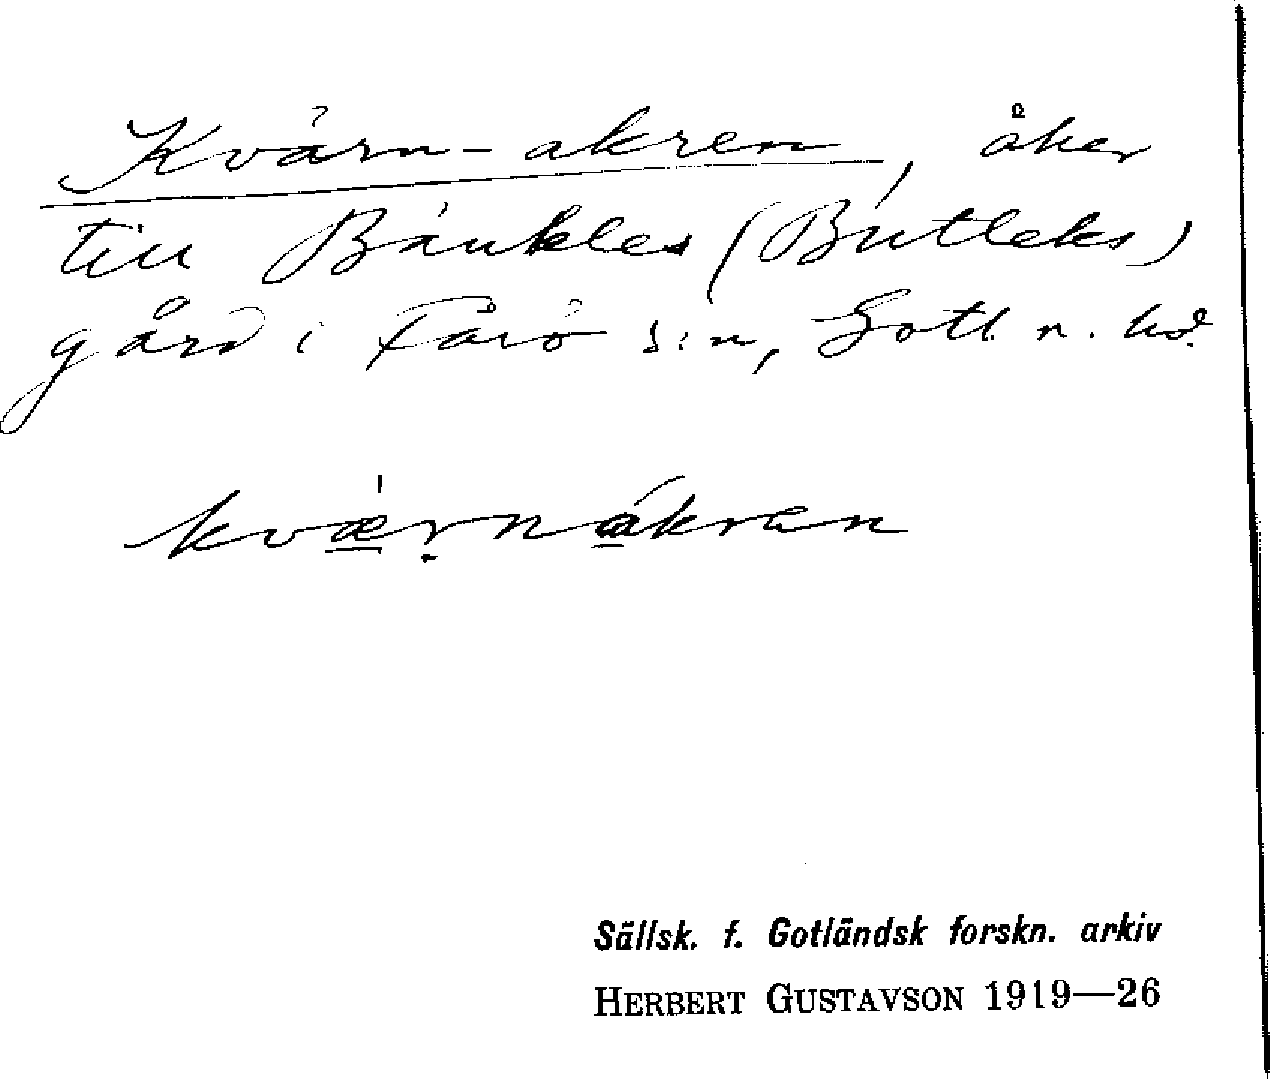 Kvärn-akren, åker
till Bäukles (Butleks)
gård i Fårö s:n, Gotl. n. hd.
kværnakren
Sällsk. f. Gotländsk forskn. arkiv
HERBERT GUSTAVSON 1919—26